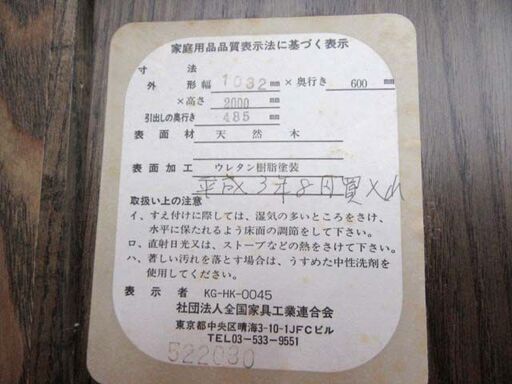 家庭用品品質表示法に基づく表示
寸法
外形幅 1032 mm ×奥行き 600 mm
×高さ 2000 mm
引出しの奥行き 485 mm
表面材 天然木
表面加工 ウレタン樹脂塗装
平成3年8月買
取扱い上の注意
イ、すえ付けに際しては、湿気の多いところをさけ、
水平に保たれるよう床面の調節をして下さい。
ロ、直射日光又は、ストーブなどの熱をさけて下さい。
ハ、著しい汚れを落とす場合は、うすめた中性洗剤を
使用してください。
表示者 KG-HK-0045
社団法人全国家具工業連合会
東京都中央区晴海3-10-1JFCビル
TEL03-533-9551
522030